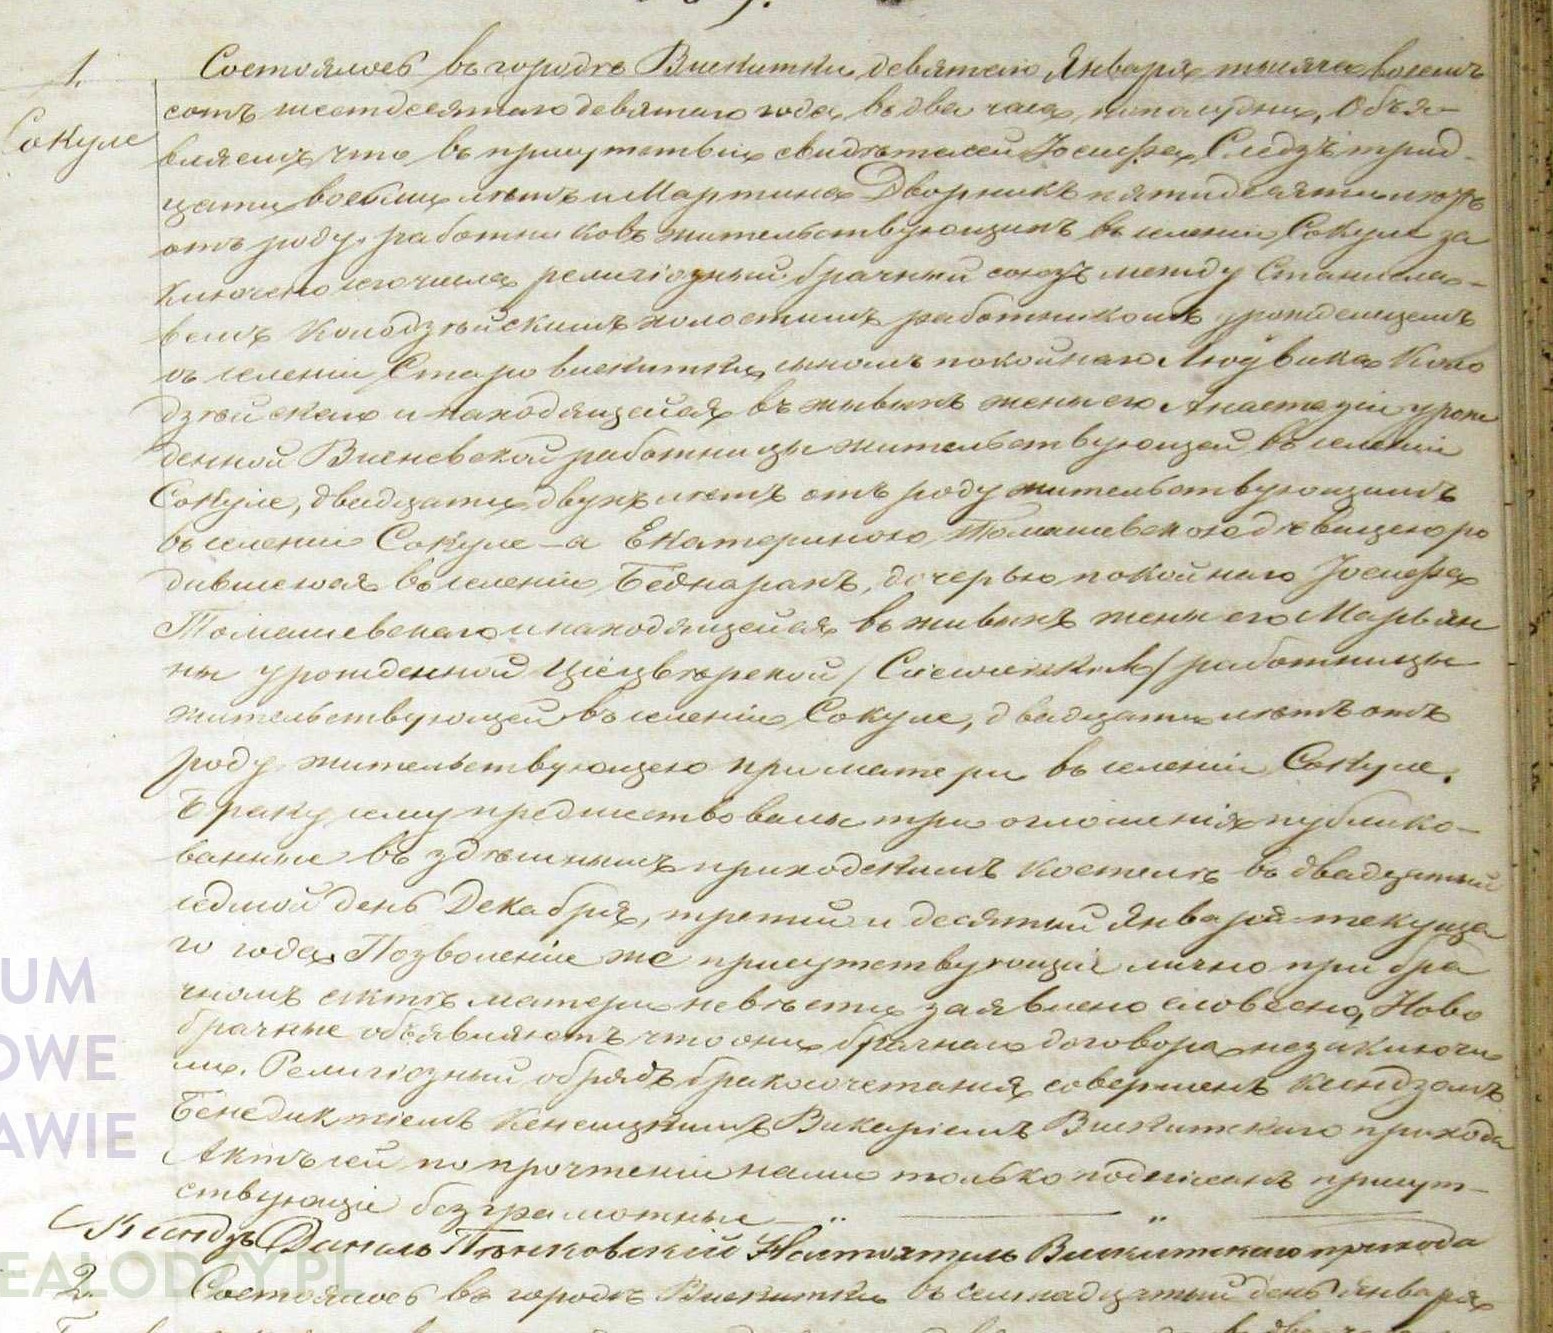 1.
Сокуле
Состоялось въ городѣ Вискитки девятаго Января тысяча восемь
сотъ шестдесятаго девятаго года, въ два часа пополудни, Объя-
вляемъ что въ присутствіи свидѣтелей Іосифа Следзъ трид-
цати восьми лѣтъ и Мартина Дворникъ пятидесяти лѣтъ
отъ роду, работниковъ жительствующихъ въ селеніи Сокуле за
ключено сего числа религіозный брачный союзъ между Станисла-
вомъ Колодзѣйскимъ холостымъ работникомъ урожденцемъ
въ селеніи Старовискитки, сыномъ покойнаго Людвика Коло
дзѣйскаго и находящейся въ живыхъ жены его Анастазіи урож
денной Висневской работницы жительствующей въ селеніи
Сокуле, двадцати двухъ лѣтъ отъ роду жительствующимъ
въ селеніи Сокуле – а Екатериною Томашевскою дѣвицею ро
дившеюся въ селеніи Беднарахъ, дочерью покойнаго Іосифа
Томашевскаго и находящейся въ живыхъ жены его Марьян
ны урожденной / работницы
жительствующей въ селеніи Сокуле, двадцати лѣтъ отъ
роду жительствующею при матери въ селеніи Сокуле.
Браку сему предшествовали три оглашенія публико-
ванные въ здѣшнымъ приходскимъ костелѣ въ двадцатый
седмой день Декабря, третій и десятый Января текуща
го года. Позволеніе же присутствующій лично при бра
чномъ актѣ матери невѣсты заявлено словесно, Ново
брачные объявляютъ что они брачнаго договора незаключи
ли. Религіозный обрядъ бракосочетанія совершенъ ксіндзомъ
Бенедиктіемъ Викаріемъ Вискитскаго прихода
Актъ сей по прочтеніи нами только подписанъ присут-
ствующіе безграмотные —
Ксіондзъ Даніилъ Пѣнковскій Настоятель Вискитскаго прихода
2. Состоялось въ городѣ Вискитки въ семнадцатый день Января